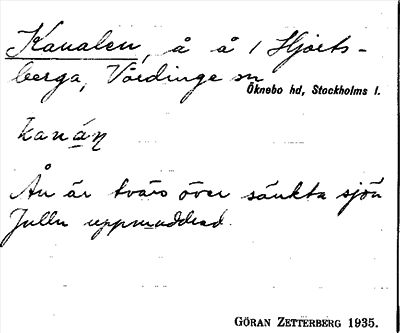 Kanalen, å å / Hjorts-
berga, Vårdinge sn
Öknebo hd, Stockholms l.
kanán
Ån är tvärs över sänkta sjön
Jullen uppmuddrad.
GÖRAN ZETTERBERG 1935.